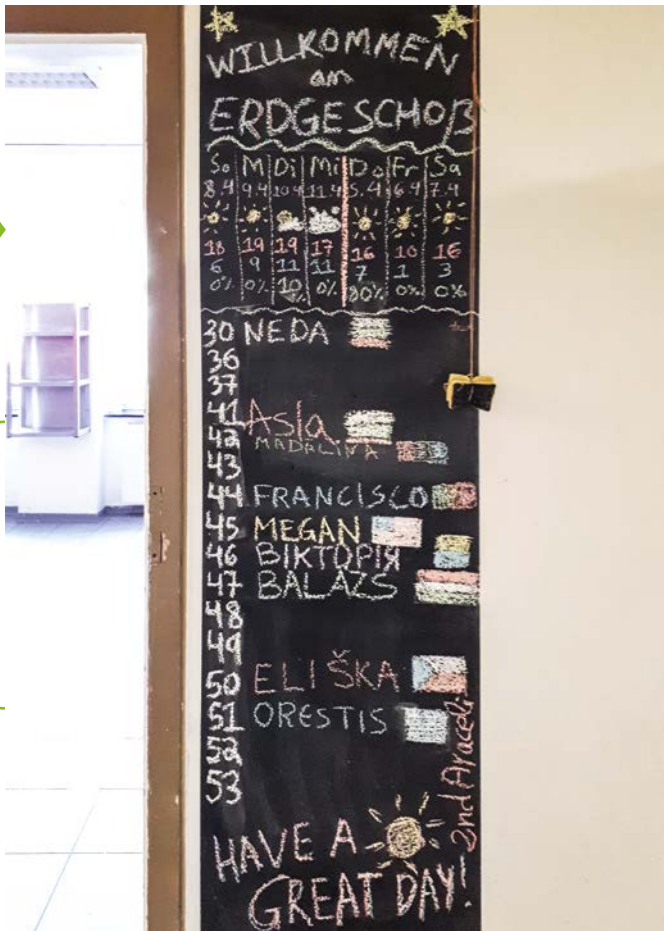 WILLKOMMEN
am
ERDGESCHOß
So M Di Mi Do Fr Sa
8.4 9.4 10.4 11.4 5.4 6.4 7.4
18 19 19 17 16 10 16
6 9 11 11 7 1 3
0% 0% 10% 0% 80% 0% 0%
30 NEDA
36
37
41 Asia
42 MADALINA
43
44 FRANCISCO
45 MEGAN
46 ВІКТОРІЯ
47 BALÁZS
48
49
50 ELIŠKA
51 ORESTIS
52
53
2nd Araceli
HAVE A
GREAT DAY!